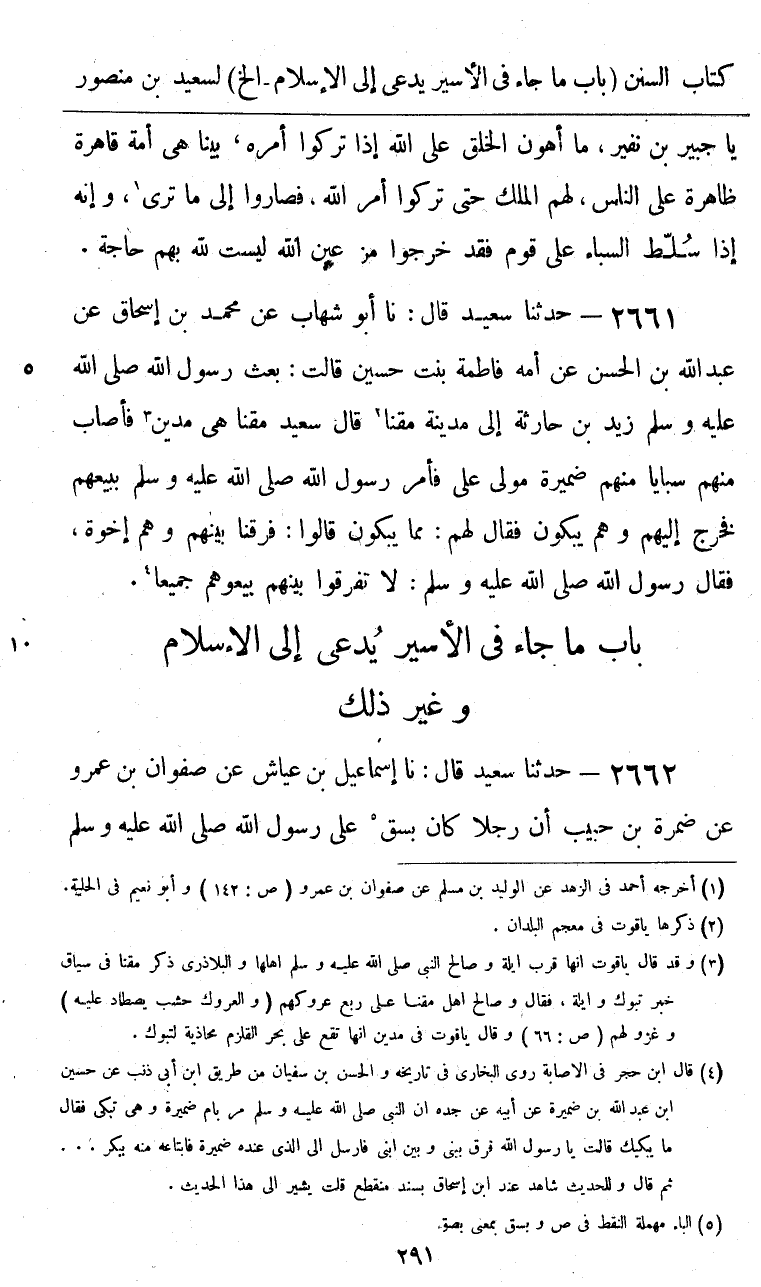 كتاب السنن (باب ما جاء فى الأسير يدعى إلى الإسلام ـ الخ) لسعيد بن منصور
يا جبير بن نفير، ما أهون الخلق على الله إذا تركوا أمره، بينا هى أمة قاهرة
ظاهرة على الناس، لهم الملك حتى تركوا أمر الله، فصاروا إلى ما ترى١، و إنه
إذا سُلّط السباء على قوم فقد خرجوا من عين الله ليست لله بهم حاجة .
٢٦٦١ – حدثنا سعيد قال: نا أبو شهاب عن محمد بن إسحاق عن
عبدالله بن الحسن عن أمه فاطمة بنت حسين قالت: بعث رسول الله صلى الله ٥
عليه و سلم زيد بن حارثة إلى مدينة مقنا٢ قال سعيد مقنا هى مدين٣ فأصاب
منهم سبايا منهم ضميرة مولى على فأمر رسول الله صلى الله عليه و سلم ببيعهم
فخرج إليهم و هم يبكون فقال لهم: مما يبكون قالوا: فرقنا بينهم و هم إخوة،
فقال رسول الله صلى الله عليه و سلم: لا تفرقوا بينهم بيعوهم جميعا٤ .
باب ما جاء فى الأسير يُدعى إلى الاءسلام ١٠
و غير ذلك
٢٦٦٢ – حدثنا سعيد قال: نا إسماعيل بن عياش عن صفوان بن عمرو
عن ضمرة بن حبيب أن رجلا كان بسق٥ على رسول الله صلى الله عليه و سلم
(١) أخرجه أحمد فى الزهد عن الوليد بن مسلم عن صفوان بن عمرو ( ص : ١٤٢ ) و أبو نعيم فى الحلية.
(٢) ذكرها ياقوت فى معجم البلدان .
(٣) و قد قال ياقوت انها قرب ايلة و صالح النبى صلى الله عليه و سلم اهلها و البلاذرى ذكر مقنا فى سياق
خبر تبوك و ايلة ، فقال و صالح اهل مقنا على ربع عروكهم ( و العروك خشب يصطاد عليه )
و غزو لهم ( ص : ٦٦ ) و قال ياقوت فى مدين انها تقع على بحر القلزم محاذية لتبوك .
(٤) قال ابن حجر فى الاصابة روى البخارى فى تاريخه و الحسن بن سفيان من طريق ابن أبى ذئب عن حسين
ابن عبد الله بن ضميرة عن أبيه عن جده ان النبى صلى الله عليه و سلم مر بام ضميرة و هى تبكى فقال
ما يبكيك قالت يا رسول الله فرق بينى و بين ابنى فارسل الى الذى عنده ضميرة فابتاعه منه ببكر . . .
ثم قال و للحديث شاهد عند ابن إسحاق بسند منقطع قلت يشير الى هذا الحديث .
(٥) الباء مهملة النقط فى ص و بسق بمعنى بصق.
٢٩١